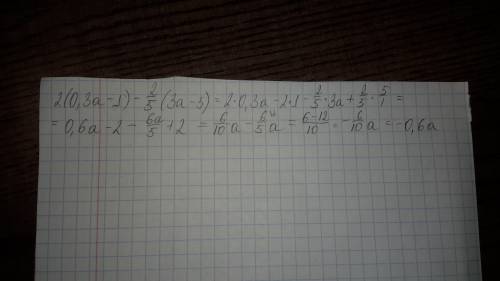 2(0,3a-1)-2/5(3a-5)=2·0,3a-2·1-2/5·3a+2/5·5/1=
=0,6a-2-6a/5+2=6/10a-6/5a=6-12/10=-6/10a=-0,6a